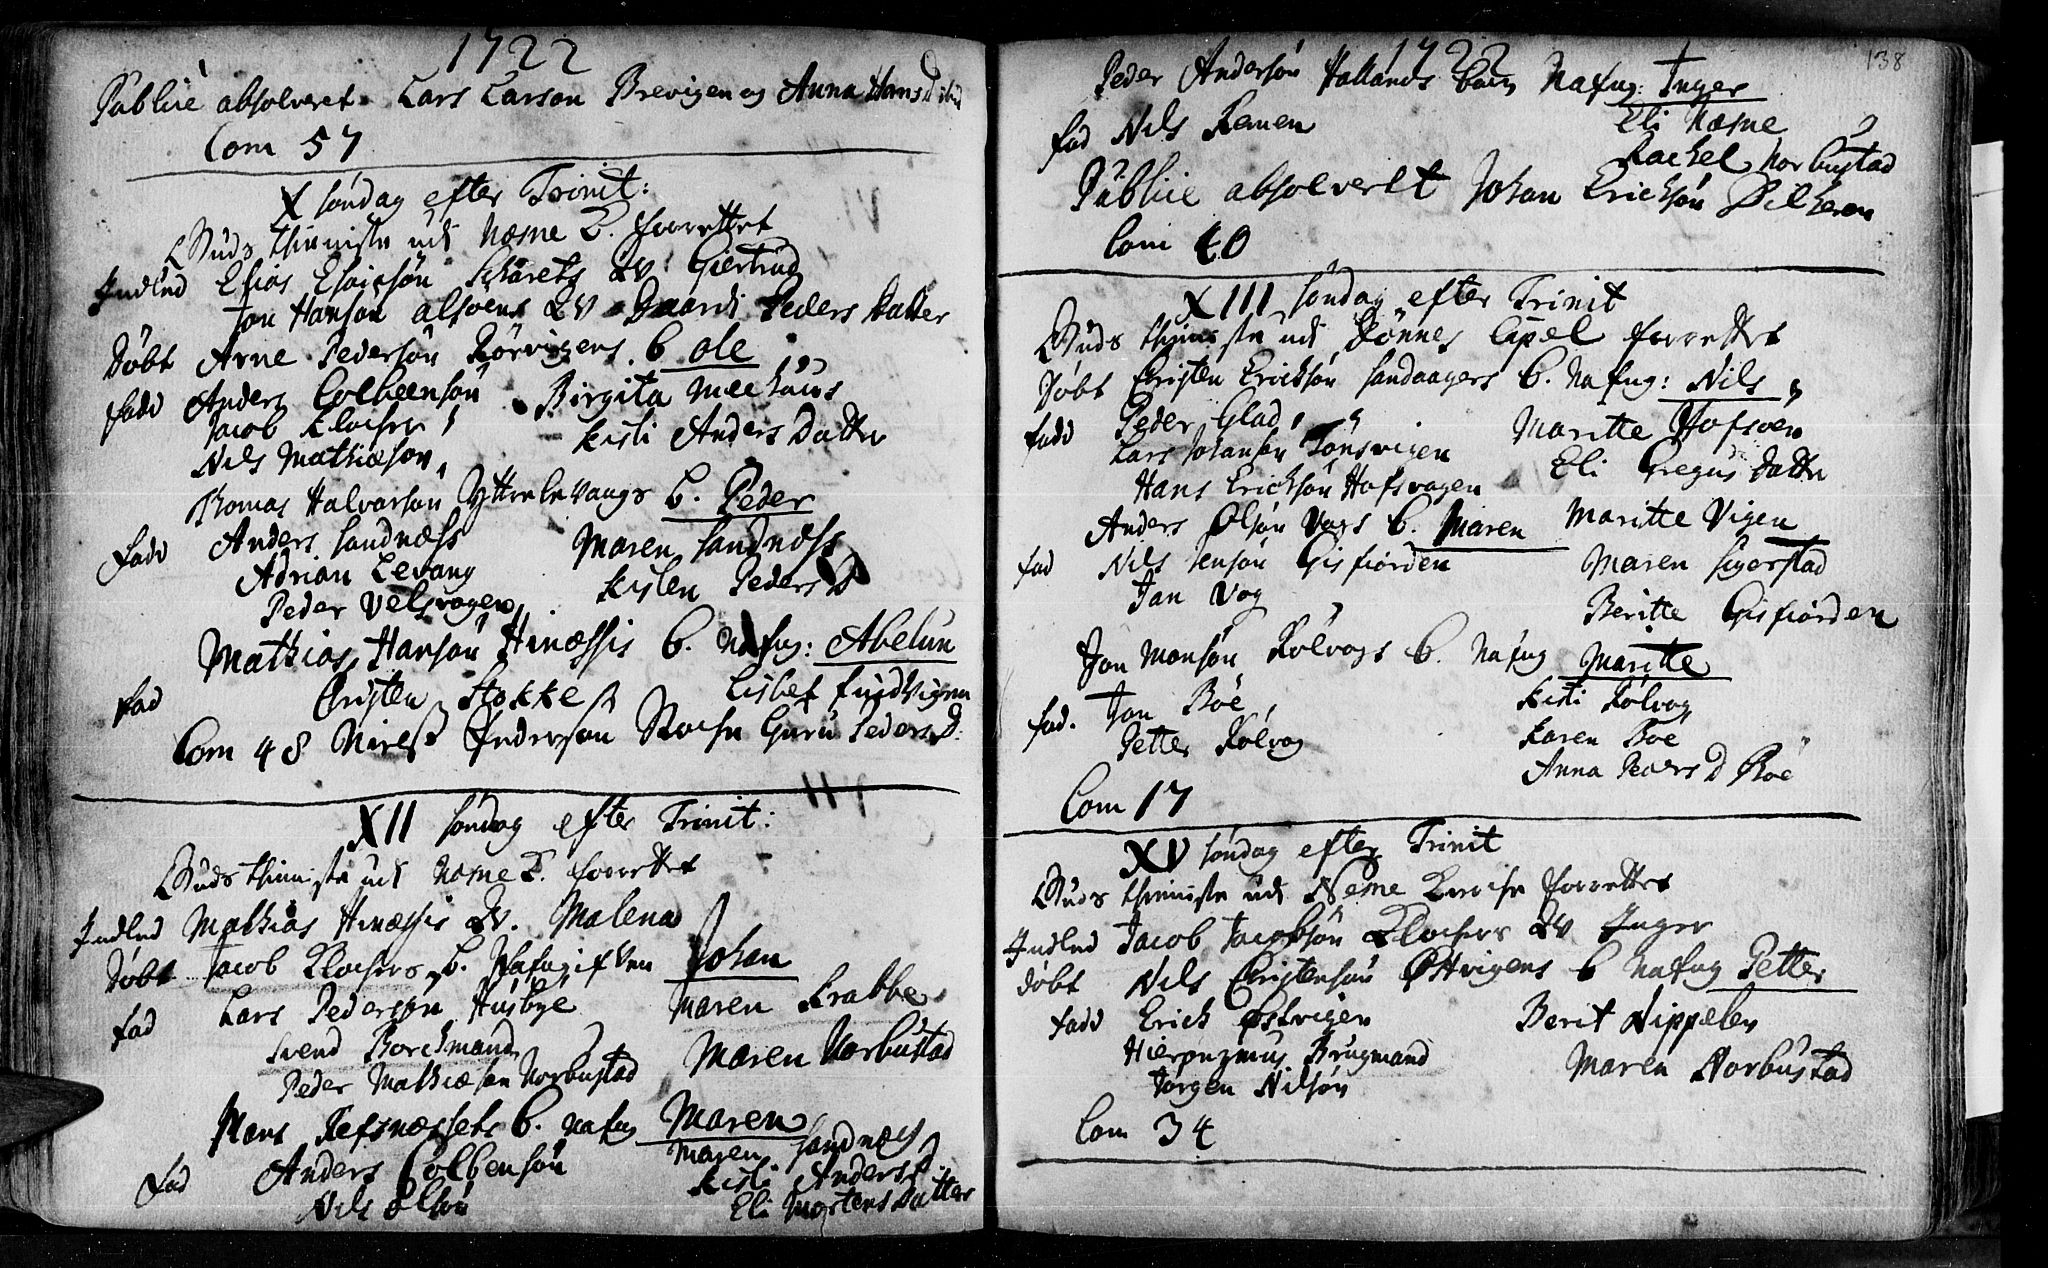 1722
Publicè absolveret Lars Larson Brevigen og Anna Hans D
Com 57
X søndag efter Trinit:
Guds thienniste udi Næsne K. forrettet
Indled Elias Elaisøn Skarets QV Giertrud
Jon Hansøn QV Peders datter
Døbt Arne Pedersøn Rörvigens b ole
fadd Anders Colbeensøn Birgita Mechaus
Jacob Klocher Kisti Anders Datter
Nils Mathiæson
Thomas Halvorsøn Yttre levangs b. Peder
Fadd Anders sandnæss Maren sandnøss
Adrian Levang Kisten Peders D
Peder Velsvogen
Mathias Hansøn Hinæssis b. Nafng: Abelun
Fad Cristen Stokke Lisbet sundvigen
Com 48 Pedersøn Guru Peders D:
XII søndag efter Trinit:
Guds thienniste udi Nesne K. forrettet
Indled Mathias Hinæssis QV. Malena
Døbt Jacob Klochers b. Nafngifven Johan
fad Lars Pederson Husbye Maren Krabbe
Svend Borchmand Maren Norbustad
Peder Mathiæsen Norbustad
Hans Refsnæssets b. nafng Maren
Fad Anders Colbensøn Maren sandnæs
Nils Olsøn Kisti Anders D
Eli Mortens Datter
1722 138
Peder Andersøn Hallands barn Nafng: Inger
fad Nils Remen Eli Næsne
Rachel Norbustad
Publicè absolveret Johan Ericksøn
Com 40
XIII søndag efter Trinit
Guds thienniste udi Rönnes Capel forrettet
Døbt Christen Ericksøn sandaagers b. Nafng: Nils
fadd Peder Glad Maritte Hofsøen
Lars Johansøn Tönsvigen Eli Gregus datter
Hans Ericksøn Hofsvogen
Anders Olsøn Vogs b. Maren Maritte Vigen
fad Nils Jensøn Gisfiorden Maren sigerstad
Jan Vog Beritte Gisfiorden
Jon Monsøn Rölvogs b. Nafng Maritte
fad. Jon Böe Kisti Rölvog
Petter Rölvog Karen Böe
Anna Peders D Böe
Com 17
XV søndag efter Trinit
Guds thienniste udi Nesne Kirche forrettet
Indled Jacob Jacobsøn Klochers QV Inger
døbt Nils Christensøn Østvigens b Nafng Petter
fadd Erick Østvigen Berit Nippelen
Hieronymus Brugmand Maren Norbustad
Jorgen Nilsøn
Com 34